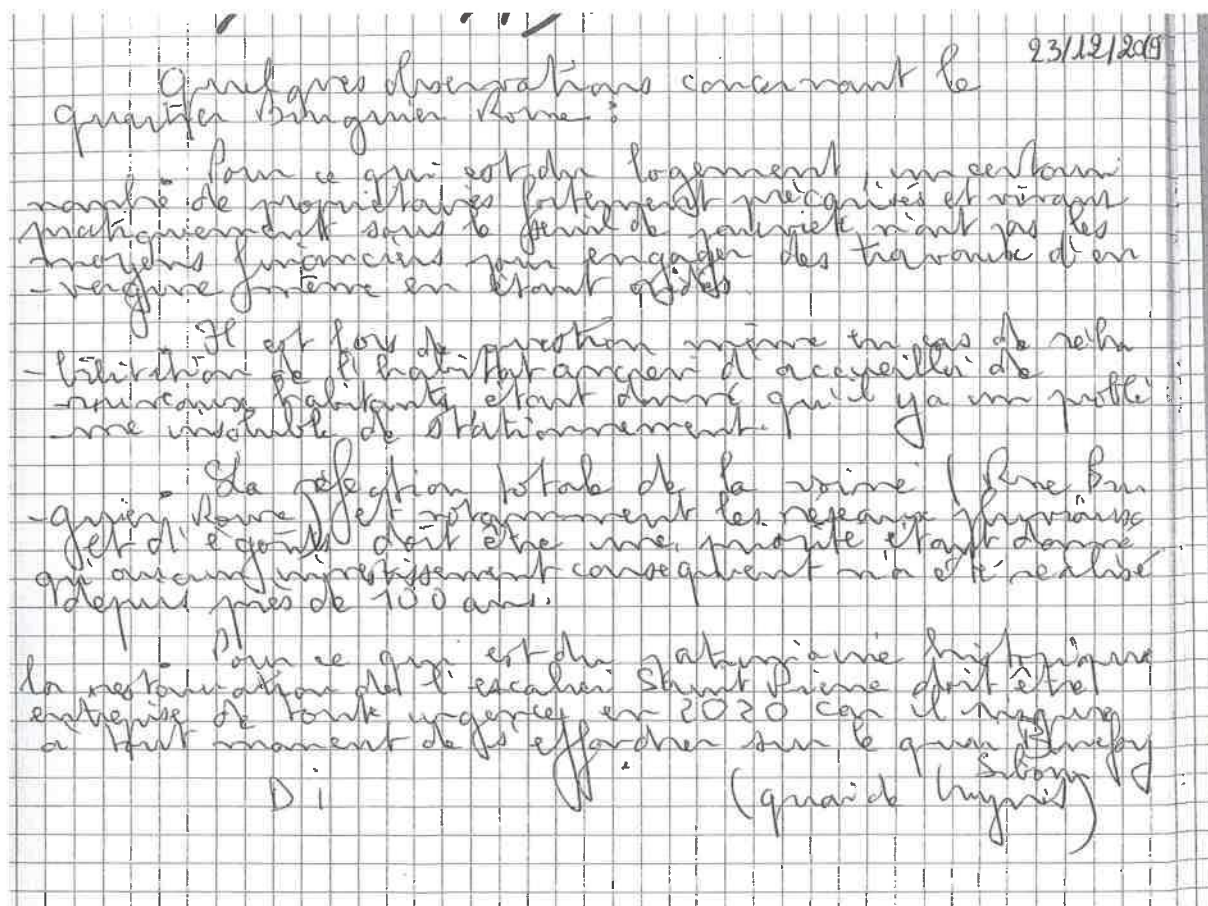 23/12/2019
Quelques observations concernant le
quartier Bruguier Roure :
Pour ce qui est du logement, un certain
nombre de propriétaires fortement précarisés et vivant
pratiquement sous le seuil de pauvreté n'ont pas les
moyens financiers pour engager des travaux d'en
-vergure même en étant aidés.
Il est hors de question même en cas de réha
-bilitation de l'habitat ancien d'accueillir de
nouveaux habitants étant donné qu'il y a un problè
-me insoluble de stationnement.
La réfection totale de la voirie (Rue Bru
-guier Roure) et notamment les réseaux pluviaux
et d'égouts doit être une priorité étant donné
qu'aucun investissement conséquent n'a été réalisé
depuis près de 100 ans.
Pour ce qui est du patrimoine historique
la restauration de l'escalier Saint Pierre doit être
entreprise de toute urgence en 2020 car il risque
à tout moment de s'effondrer sur le quai
(quai de
Di